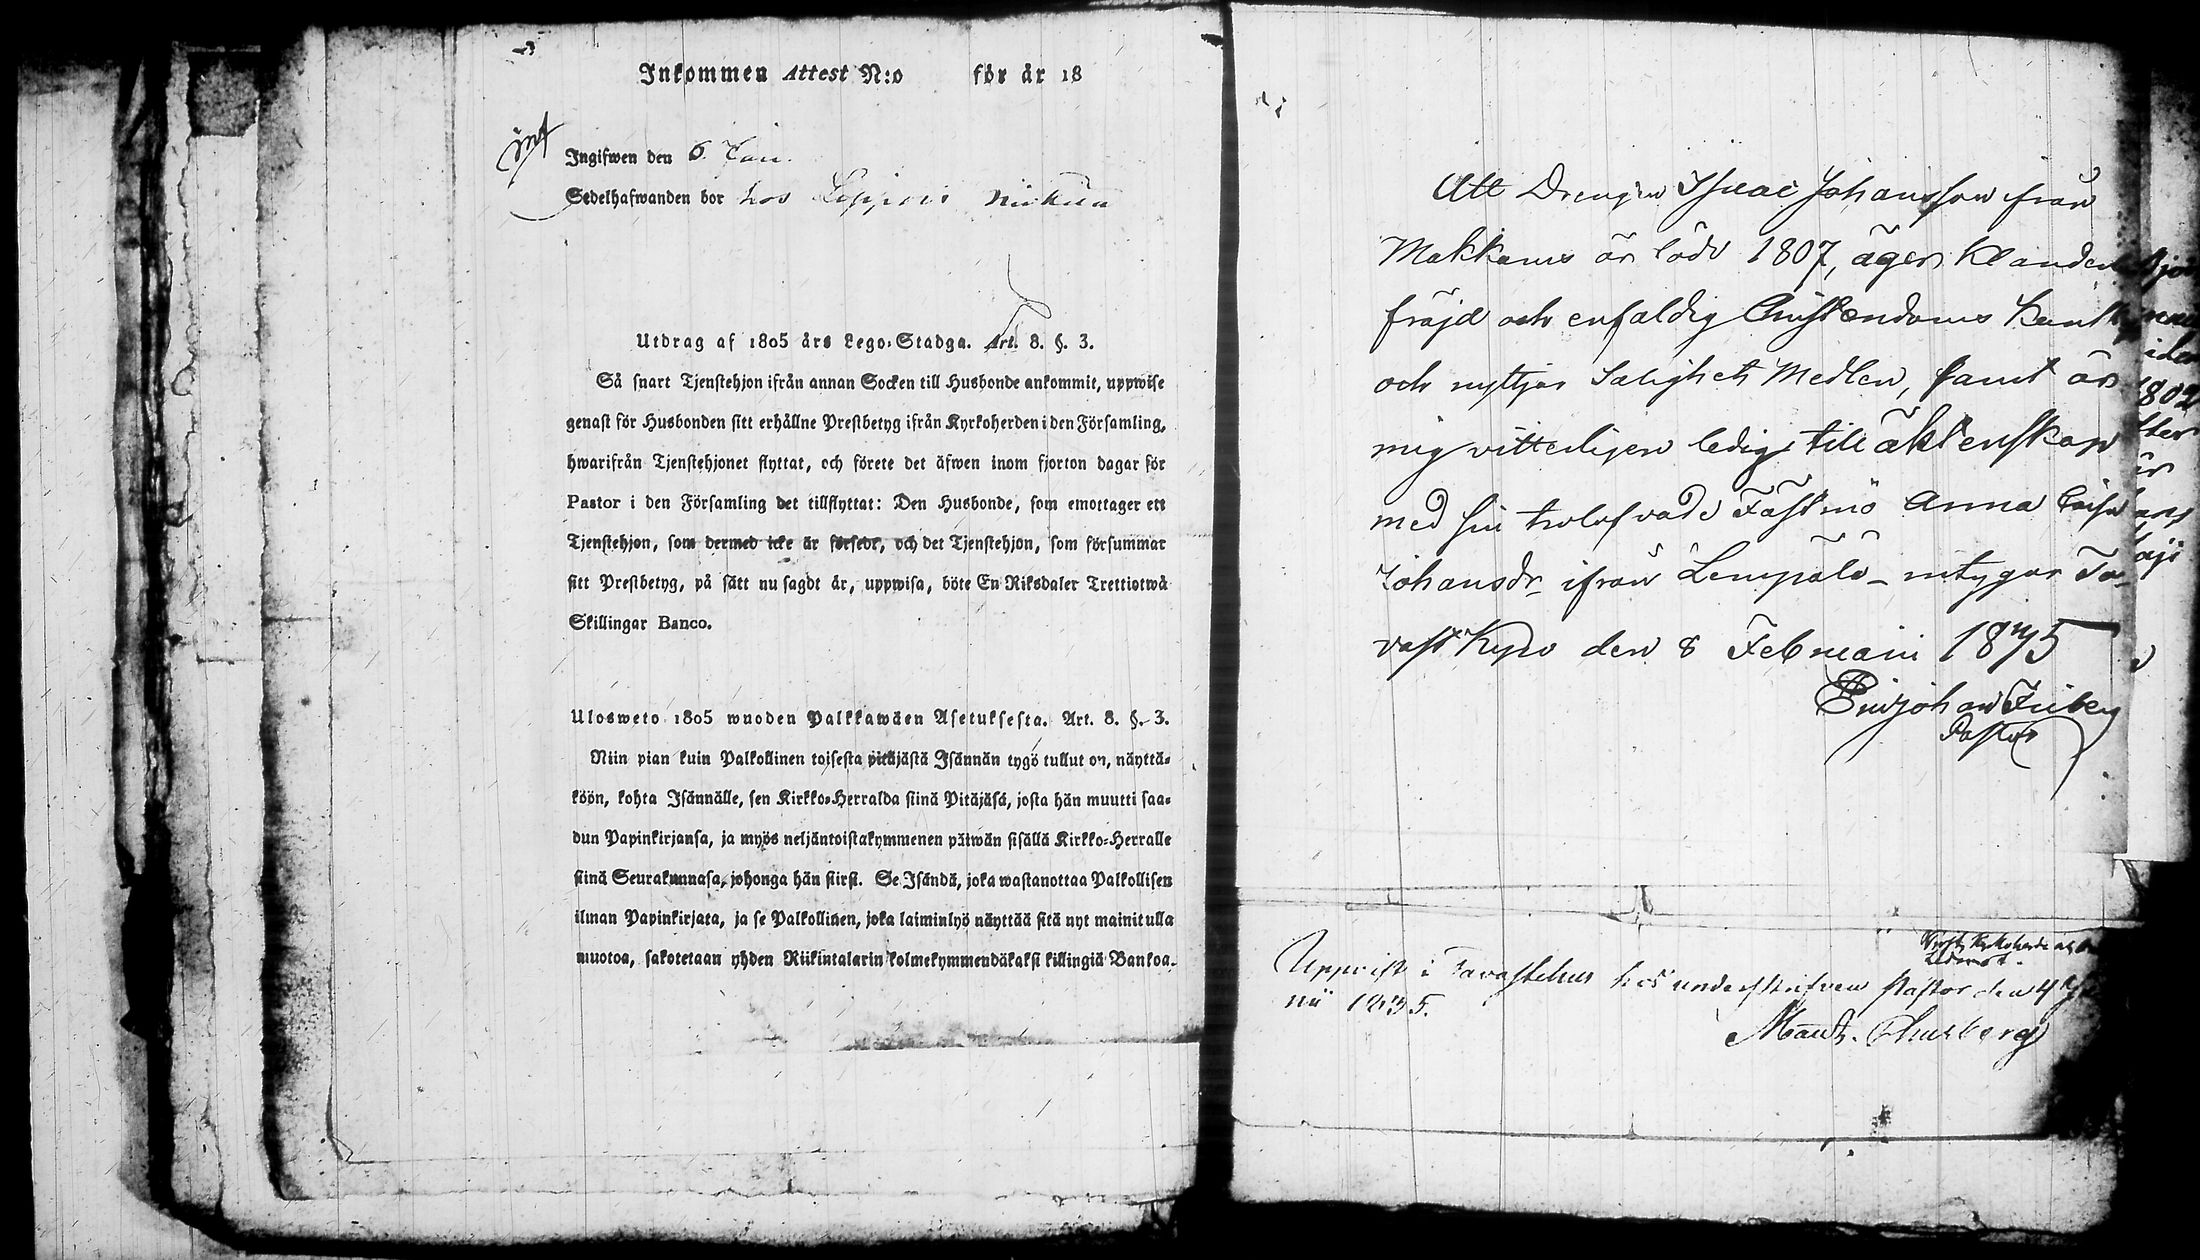 Inkommen Attest N:o för år 18
Ingifwen den 6
Sedelhafwanden bor hos
Utdrag af 1805 års Lego-Stadga. Art. 8. §. 3.
Så snart Tjenstehjon ifrån annan Socken till Husbonde ankommit, uppwise
genast för Husbonden sitt erhållne Prestbetyg ifrån Kyrkoherden i den Församling,
hwarifrån Tjenstehjonet flyttat, och förete det äfwen inom fjorton dagar för
Pastor i den Församling det tillflyttat: Den Husbonde, som emottager ett
Tjenstehjon, som dermed icke är försedt, och det Tjenstehjon, som försummar
sitt Prestbetyg, på sätt nu sagdt är, uppwisa, böte En Riksdaler Trettiotwå
Skillingar Banco.
Ulosweto 1805 wuoden Palkkawäen Asetuksesta. Art. 8. §. 3.
Niin pian kuin Palkollinen toisesta pitäjästä Isännän tygö tullut on, näyttä-
köön, kohta Isännälle, sen Kirkko-Herralda siinä Pitäjäsä, josta hän muutti saa-
dun Papinkirjansa, ja myös neljäntoistakymmenen päiwän sisällä Kirkko-Herralle
siinä Seurakunnasa, johonga hän siirsi. Se Isändä, joka wastanottaa Palkollisen
ilman Papinkirjata, ja se Palkollinen, joka laiminlyö näyttää sitä nyt mainitulla
muotoa, sakotetaan yhden Riikintalarin kolmekymmendäkaksi killingiä Bankoa.
Att Drengen Isaac Johansson från
Makkaris är född 1807, äger
fräjd och enfaldig Christendoms
och nyttjar Salighets Medlen, samt är
mig vitterligen ledig till äktenskap
med sin trolofvade Fästmö Anna Caisa
Johansdr ifrån Lempälä - intygar Ta-
vast Kyro den 8 Februarii 1835
Friberg
Pastor
Uppvist i Tavastehus hos underskrifven Pastor den 4
nii 1835.
Thurberg